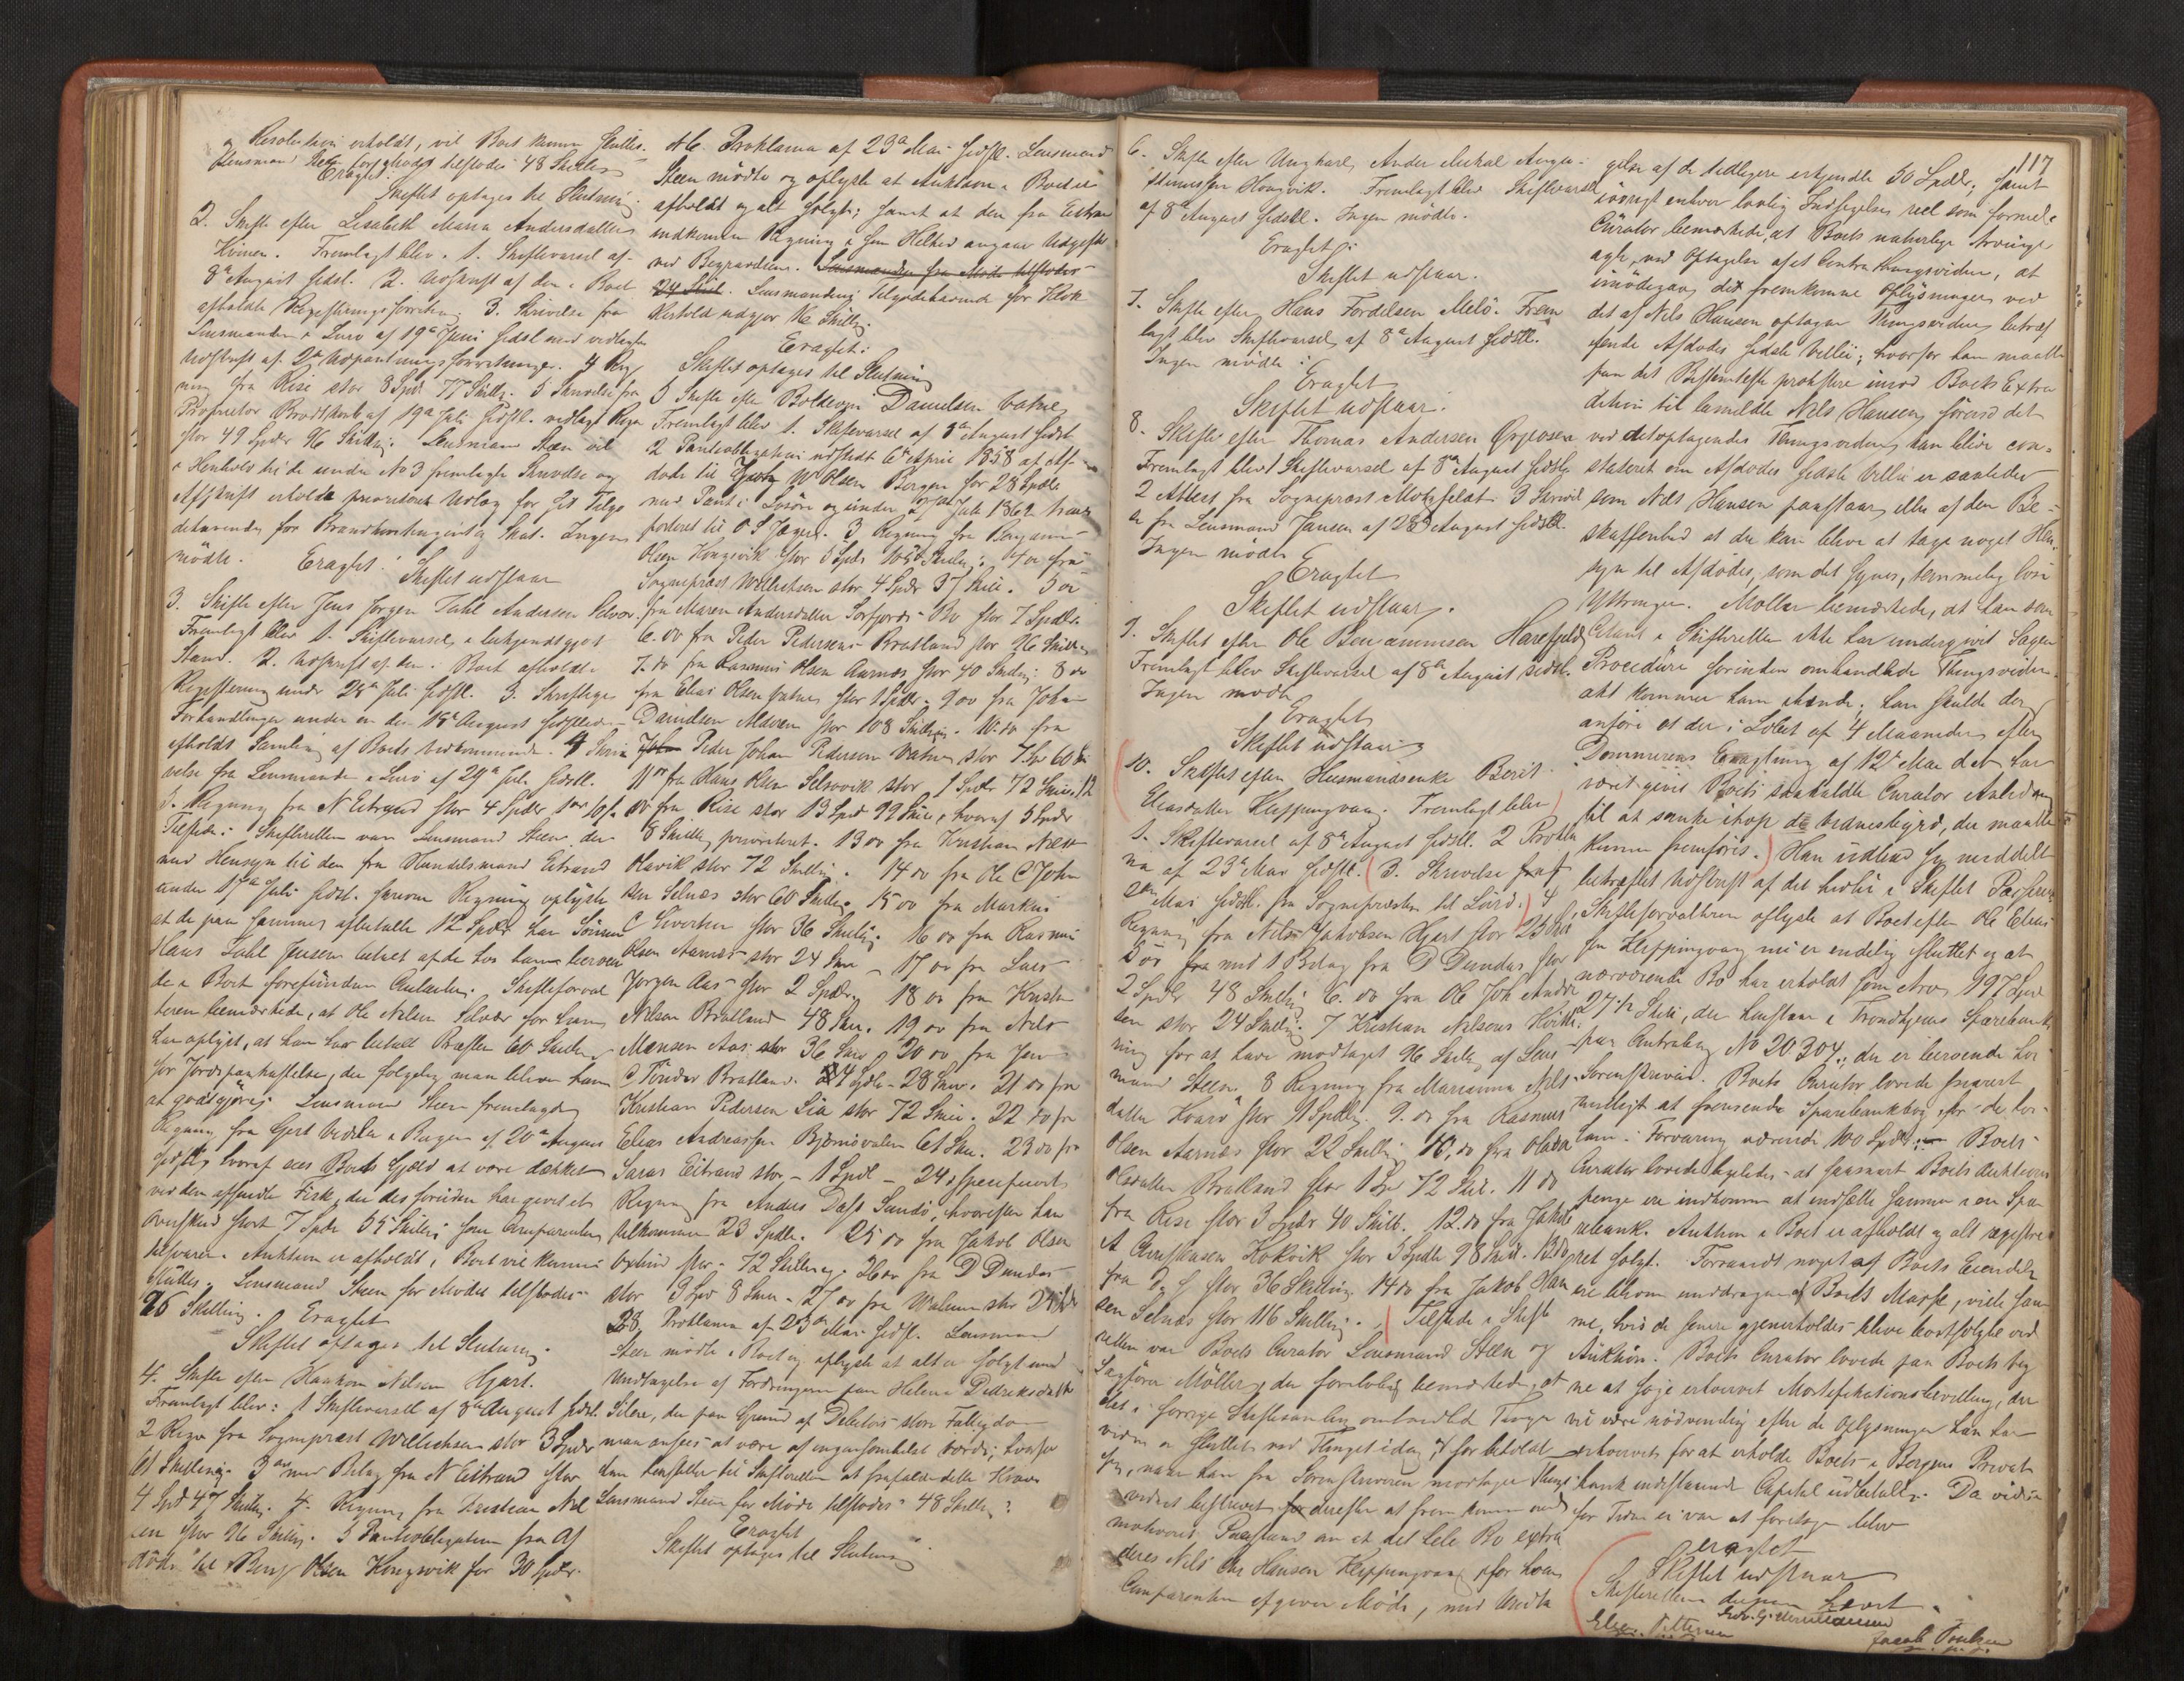 Resolution erholdt, vil Boet kunne sluttes.
Lensmand Steen tilstodes 48 Skilling
Eragtet:
Skiftet optages til Slutning.
2. Skifte efter Lisabeth Maria Andersdatter
Kvinen. Fremlagt blev. 1. Skiftevarsel af
8de August sidstl. 2. Udskrift af den i Boet
afholdte Registreringsforretning 3. Skrivelse fra
Lensmanden i Lurö af 19de Juni sidstl med vedlagte
Udskrift af Udpantningsforretninger. 4 Reg
ning fra Rise stor 8 Spd 77 Skillg. 5 Skrivelse fra
Proprietor Brodtkorb af 19de Juli sidstl. vedlagt Regn
stor 49 Spdlr 96 Skilling. Lensmand Steen vil
i Henhold til de under No 3 fremlagte Skrivelse og
Afskrift erholde prioriteret Udlæg for sit Tilgo
dehavende for Brandkontingent og Skat. Ingen
mödte. Eragtet:
Skiftet udstaar
3. Skifte efter Jens Jörgen Dahl Andersen Selsøv.
Fremlagt blev 1. Skiftevarsel i bekjendtgjort
Stand. 2. Udskrift af den i Boet afholdte
Registrering under 28de Juli sidstl. 3. Skriftlige
Forhandlinger under en den 18de August sidstleden
afholdt Samling af Boets Vedkommende. 4 Skri
velse fra Lensmanden i Lurö af 29de Juli sidstl.
5. Regning fra N Eitrand stor 4 Spdlr
Tilstede i Skifteretten var Lensmand Steen der
med Hensyn til den fra Handelsmand Eitrand
under 17de Juli sidstl. Regning oplyste
at de paa samme afbetalte 12 Spdlr har Sønnen
Hans Dahl Jensen betalt af de hos ham beroen
de i Boet forefundne Contanter. Skifteforval
teren bemærkede, at Ole Nilsen Selvær for ham
har oplyst, at han har betalt Præsten 60 Skilling
for Jordspaakastelse, der følgelig maa blive ham
at godtgjøres. Lensmand Steen fremlagde
Regning fra Gert i Bergen af 20de August
sidstl, hvoraf sees Boets Gjæld at være dækket
ved den afsendte Fisk, der desforuden har givet et
Overskud stort 7 Spdlr 55 Skilling som Comparenten
tilsvarer. Auktion er afholdt, Boet vil kunne
sluttes. Lensmand Steen for Mödet tilstodes
96 Skilling. Eragtet
Skiftet optages til Slutning.
4. Skifte efter Haakon Nilsen Hjart.
Fremlagt blev: 1 Skiftevarsel af 8de August sidstl.
2 Regn fra Sogneprest Wellichsen stor 3 Spdlr
61 Skilling. 3 med Bilag fra N Eitrand stor
4 Spd 47 Skillg. 4. Regning fra Kristian Nil
sen stor 96 Skilling. 5 Panteobligation fra Af
döde til Benj Olsen Kongsvik for 30 Spdr.
No 6. Proklama af 23de Mai sidstl. Lensmand
Steen mödte og oplyste at Auktion i Boet er
afholdt og alt solgt; samt at den fra Eitran
indkomne Regning i sin Helhed angaar Udgifter
ved Begravelsen. Lensmanden for Möde tilstodes
24 Skill. Lensmandens Tilgodehavende for Klok
Bertold udgjør 16 Skilling.
Eragtet:
Skiftet optages til Slutning
5 Skifte efter Bolhevn Danielsen Vatne
Fremlagt blev 1. Skiftevarsel af 8de August sidstl
2 Panteobligation udstedt 6te April 1858 af Af
döde til W Olsen Bergen for 28 Spdlr
med Pant i Lösöre og under 2den Juli 1862 trans
porteret til O S Jæger. 3 Regning fra Benjamin
Olsen Kongsvik stor 5 Spdlr 105 Skillg. 4 do fra
Sogneprest Wellichsen stor 4 Spdlr 37 Skill. 5 do
fra Maren Andersdatter Sorfjord Bo stor 7 Spdlr.
6. do fra Peder Pedersen Bratland stor 96 Skilling
7. do fra Rasmus Olsen Aarnes stor 40 Skilling 8 do
fra Elias Olsen Vatne stor 1 Spdlr. 9 do fra Johan
Danielsen Maren stor 108 Skilling. 10. do fra
Peder Johan Pedersen Vatne stor 7 Sp 60 Sk
11 do fra Hans Olsen Selsovik stor 1 Spdlr 72 Skill. 12
do fra Rise stor 13 Spd 92 Skill, hvoraf 5 Spdlr
8 Skillg prioriteret. 13 do fra Kristian Næss
Olavik stor 72 Skilling. 14 do fra Ole C John
sen Selnæs stor 60 Skillg. 15 do fra Markus
C Sivertsen stor 36 Skilling. 16 do fra Rasmus
Olsen Aarnes stor 24 Skill - 17 do fra Lars
Jörgen Aas stor 2 Spdlr. 18 do fra Kristen
Nilsen Bratland 48 Skill. 19 do fra Nils
Monsen Aas stor 36 Skill 20 do fra Jens
C Tönder Bratland. 4 Spdlr - 28 Skill. 21 do fra
Kristian Pedersen Lia stor 72 Skill. 22 do fra
Elias Andreassen Bjørnsvalen 61 Sk. 23 do fra
Saras Eitrand stor - 1 Spd - 24 uspecificeret
Regning fra Anders Dass Sandö, hvorefter han
tilkommer 23 Spdlr. 25 do fra Jakob Olsen
stor - 72 Skilling. 26 do fra D Dundas
stor 3 Spd 8 Skill - 27 do fra Walnum stor 24
28 Proklama af 23de Mai sidstl. Lensmand
Steen mödte i Boet og oplyste at alt er solgt med
Undtagelse af Fordringen paa Helena Didriksdatter
Silere, der paa Grund af Debitors store Fattigdom
maa ansees at være af ingensomhelst værdi, hvorfor
han henstiller til Skifteretten at frafalde dette Krav
Lensmand Steen for Möde tilstodes 48 Skilling.
Eragtet
Skiftet optages til Slutning
117
6. Skifte efter Ungkarl Ander Mikal Augu-
stinussen Kongsvik. Fremlagt blev Skiftevarsel
af 8de August sidstl. Ingen mödte.
Eragtet:
Skiftet udstaar.
7. Skifte efter Hans Fordelsen Melö. Frem
lagt blev Skiftevarsel af 8de August sidstl.
Ingen mödte:
Eragtet
Skiftet udstaar.
8. Skifte efter Thomas Andersen
Fremlagt blev 1 Skiftevarsel af 8de August sidstl
2 Attest fra Sogneprest Motzfeldt 3 Skrivel
se fra Lensmand Jansen af 28de August sidstl.
Ingen mödte
Eragtet
Skiftet udstaar.
9. Skiftet efter Ole Benjaminsen Harefjeld
Fremlagt blev Skiftevarsel af 8de August sidstl.
Ingen mödte
Eragtet
Skiftet udstaar
10. Skiftet efter Husmandsenke Berit
Eliasdatter Kleppingvaag. Fremlagt blev
1. Skiftevarsel af 8de August sidstl. 2 Prokla
ma af 23de Mai sidstl. 3. Skrivelse af
Mai sidstl. fra Sognepresten til Lurö. 4
Regning fra Nils Jakobsen Hjart stor 25 Skill
5 do med 1 Bilag fra D Dundas stor
2 Spdlr 48 Skilling 6. do fra Ole Joh Ander
sen stor 24 Skilling. 7 Kristian Nilsens Kvitte
ring for at have modtaget 96 Skillg af Lens
mand Steen. 8 Regning fra Marianna Nils
datter Kvarø stor 1 Spdlr. 9. do fra Rasmus
Olsen Aarnæs stor 22 Skillg 10, do fra Olava
Olsdatter Bratland stor 1 Spd 72 Skill. 11 do
fra Rise stor 3 Spdlr 40 Skill. 12. do fra Jakob
A Christiansen Kokvik stor 5 Spdlr 98 Skill. 13 do
fra stor 36 Skilling 14 do fra Jakob Han
sen Selnæs stor 116 Skilling. Tilstede i Skifte
retten var Boets Curator Lensmand Steen og
Sagförer Möller, der foreløbig bemærkede, at
det i forrige Skiftesamling ombandlede Things
vidne er sluttet ved Thinget idag, og forbeholdt
sig, naar han fra Sorenskriveren modtager Things
vidnet beskrevet derefter at frem komme med
motiveret Paastand om at det hele Bo extra
deres Nils Chr Hansen Kleppingvaag for hvem
Comparenten afgiver Möde, med Undta
gelse af de tidligere erkjendte 50 Spdlr, samt
iövrigt enhver lovlig Indsigelse reel som formel.
Curator bemærkede, at Boets naturlige Arvinger
agte, ved Optagelse af et Contra thingsvidne, at
imödegaa de fremkomne Oplysninger ved
det af Nils Hansen optagne Thingsvidne betræf
fende Afdödes sidste Villie; hvorfor han maatte
paa det Bestemteste protestere imod Boets Extra
dition til bemeldte Nils Hansen, forend det
ved det optagendes Thingsvidne kan blive con-
stateret om Afdödes sidste Villie er saaledes
som Nils Hansen paastaar, eller af den Be-
skaffenhed at der kan blive at tage noget Hen
syn til Afdödes, som det synes, temmelig löse
Yttringer. Möller bemærkede, at han som
Citant i Skifteretten ikke har undergivet Sagen
Procedure forinden omhandlede Thingsvidne
akt kommer ham ihænde; han skulde der
anföre at der i Löbet af 4 Maaneder efter
Dommerens Eragtning af 12te Mai d.A har
været givet Boets saakaldte Curator Anledning
til at sanke ihop de Vidnesbyrd, der maatte
kunne fremföres. Han udbad sig meddelt
bekræftet Udskrift af det hidtil i Skiftet Passerede
Skifteforvalteren oplyste at Boet efter Ole Elias
sen Kleppingvaag nu er endelig sluttet og at
nærværende Bo har erholdt som Arv 197 Spd
27 1/2 Skill, der henstaar i Trondhjems Sparebank
paa Contrabog No 20304, der er beroende hos
Sorenskriveren. Boets Curator lovede snarest
muligt at fremsende Sparebankbog for de hos
ham i Forvaring værende 100 Spdlr. Boets
Curator lovede ligeledes at saasnart Boets Auktions
penge ere indkomne at indsætte samme i en Spa
rebank. Auktion i Boet er afholdt og alt registre
ret solgt. Forsaavidt noget af Boets Eiendele
ere blevne unddragne Boets Masse, ville sam
me, hvis de senere gjenerholdes blive bortsolgte ved
Auktion. Boets Curator lovede paa Boets veg
ne at söge erhvervet Mortifikationsbevilling, der
vil være nödvendig efter de Oplysninger han har
erhvervet for at erholde Boets i Bergens Privat
bank indestaaende Capital udbetalt. Da videre
for Tiden ei var at foretage blev
eragtet
Skiftet udstaar
Skifteretten dermed hævet.
Elias Pettersen
Jacob Paulsen